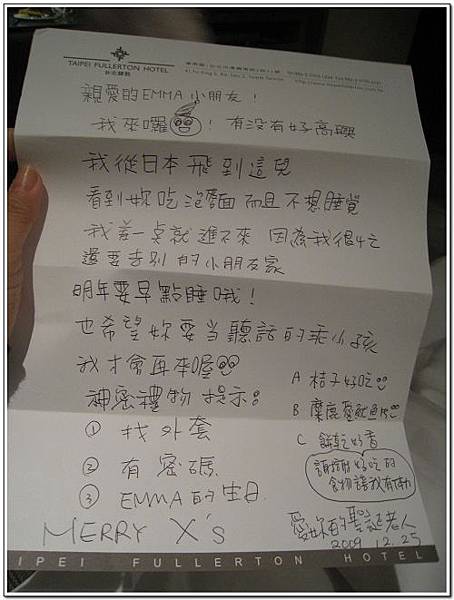 TAIPEI FULLERTON HOTEL
親愛的EMMA小朋友!
我來囉! 有没有好高興
我從日本飛到這兒
看到妳吃泡麵而且不想睡覺
我差一点就進不來 因為我很忙
還要去別的小朋友家
明年要早點睡哦!
也希望妳要當聽話的乖小孩
我才會再來喔
神密禮物提示:
① 找外套
② 有密碼
③ EMMA的生日
A 桔子好吃
B 麋鹿愛魷魚
C 餅乾好香
謝謝好吃的
食物讓我有体力
MERRY X's
愛妳的聖誕老人
2009.12.25
TAIPEI FULLERTON HOTEL